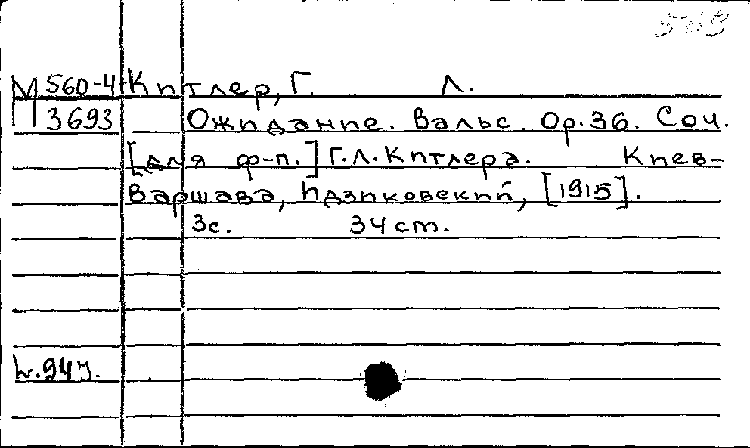 М 560-4 Китлер, Г. Л.
3693 Ожидание. Вальс. Ор. 36. Соч.
[для ф-п.] Г.Л. Китлера. Киев-
Варшава, Идзиковский, [1915].
3с. 34 см.